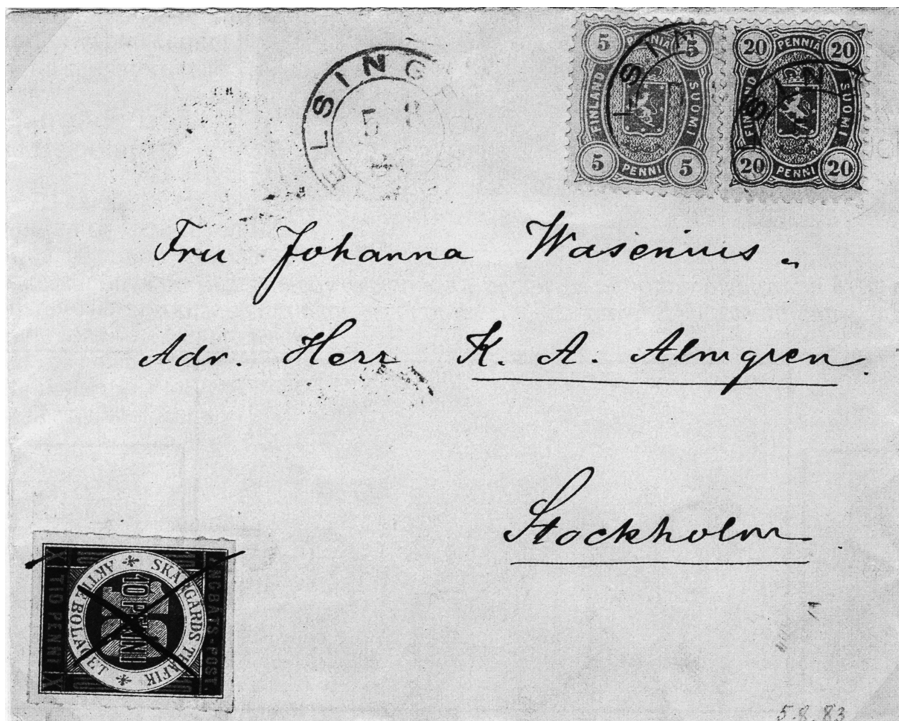 5 PENNIA 5
FINLAND SUOMI
5 PENNI 5
20 PENNIA 20
FINLAND SUOMI
20 PENNI 20
ELSING
5 8
Fru Johanna Wasenius.
Adr. Herr K. A. Almgren.
Stockholm
SKÄRGÅRDS TRAFIK
AKTIE BOLAGET
10 PENNI
NGBÅTS-POST.
X TIO PENNI X
5.8.83